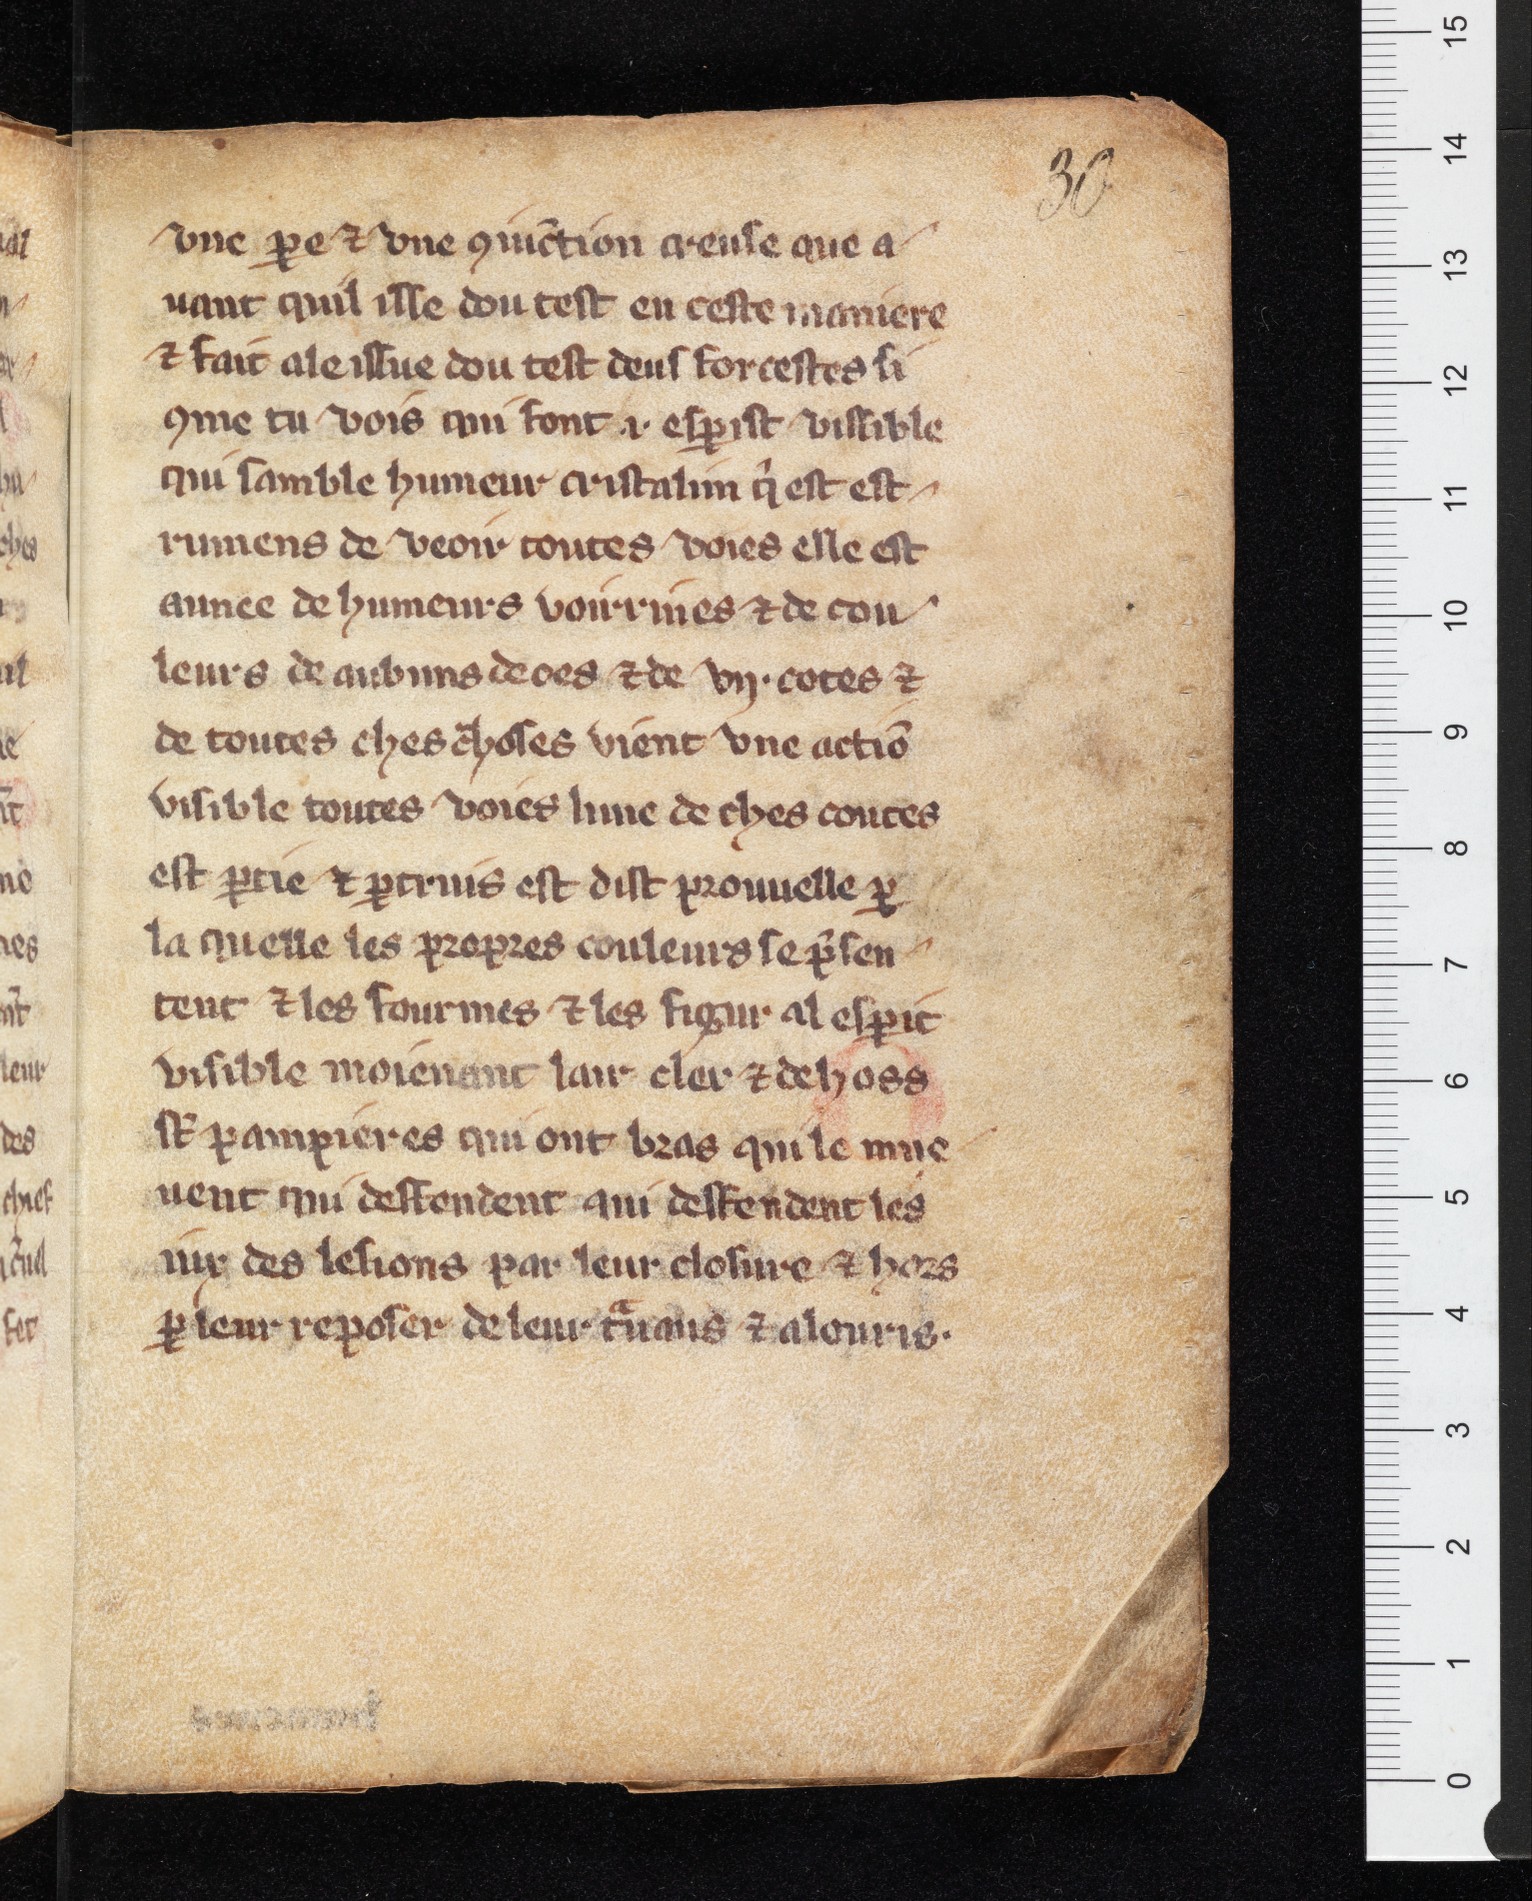 30
vne ꝑe ⁊ vne ꝯiũction creuse que a
uant quil isse dou test en ceste maniere
⁊ fait ale issue dou test deus forcestes si
ꝯme tu vois qui font .i. esꝑist vissible
qui samble humeur cristalim qͥ est est
rumens de veoir toutes voies elle est
aunee de humeurs voirrines ⁊ de cou
leurs de aubuns de oes ⁊ de vij. cotes ⁊
de toutes ches choses vient vne actiõ
visible toutes voies lune de ches coutes
est ꝑtie ⁊ ꝑtruis est dist prouuelle ꝑ
la quelle les propres couleurs se p̃sen
tent ⁊ les fourmes ⁊ les figur al esꝑit
visible moienant lair cler ⁊ dehoss
st̃ pampieres qui ont bras qui le mue
uent qui deffendent qui deffendent les
iix des lesions par leur closure ⁊ hors
ꝑ leur reposer de leur tͣuaus ⁊ alouris.